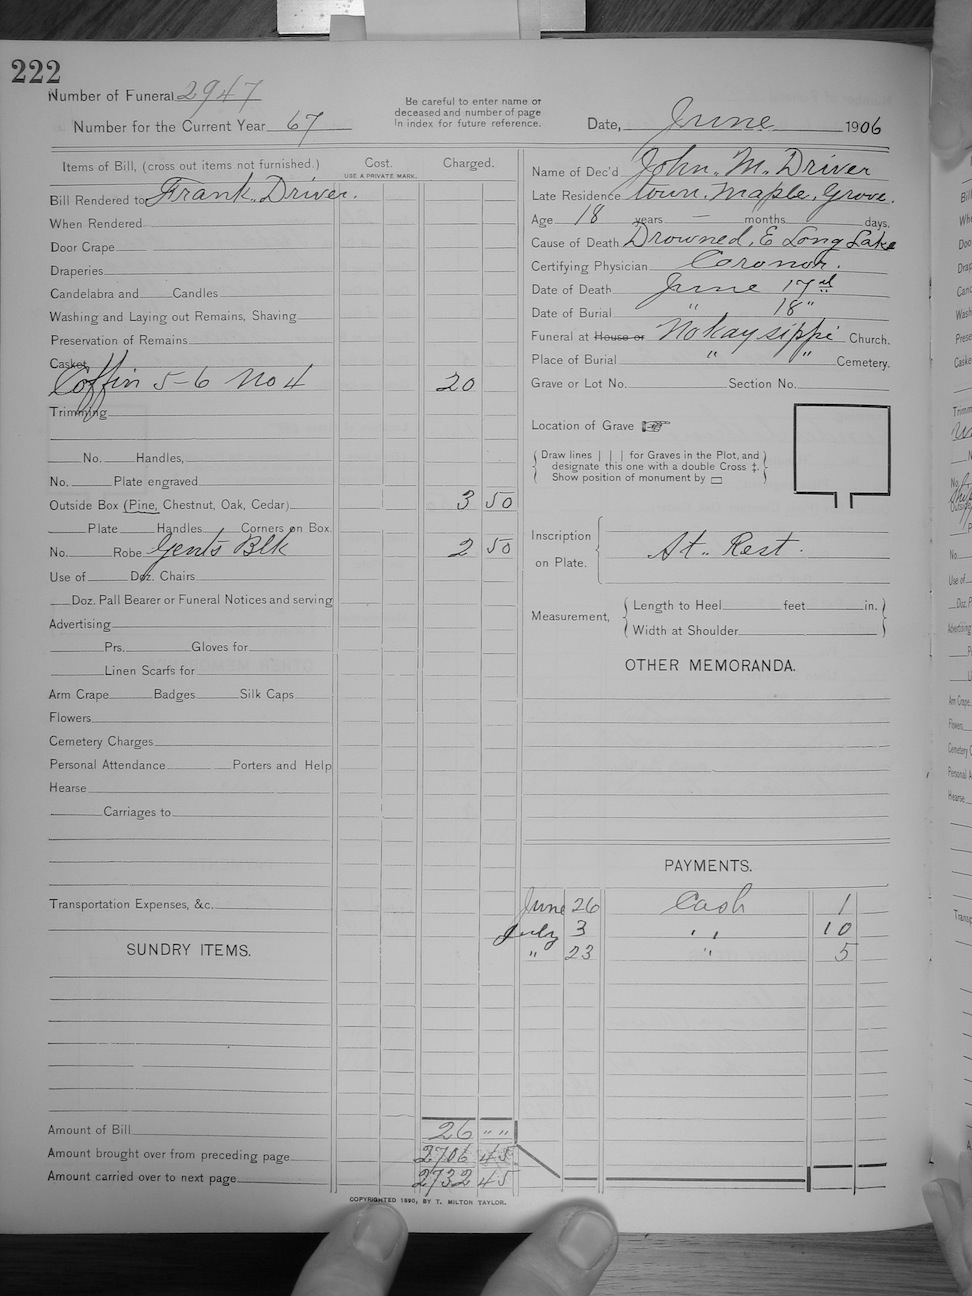 222
Number of Funeral 2947
Number for the Current Year 67
Be careful to enter name of
deceased and number of page
in index for future reference.
Date, June 1906
Items of Bill, (cross out items not furnished.) Cost. Charged.
USE A PRIVATE MARK.
Bill Rendered to Frank. Driver.
When Rendered
Door Crape
Draperies
Candelabra and Candles
Washing and Laying out Remains, Shaving
Preservation of Remains
Casket
Coffin 5-6 No 4 20
Trimming
No. Handles,
No. Plate engraved
Outside Box (Pine, Chestnut, Oak, Cedar) 3 50
Plate Handles Corners on Box.
No. Robe Gents Blk 2 50
Use of Doz. Chairs
Doz. Pall Bearer or Funeral Notices and serving
Advertising
Prs. Gloves for
Linen Scarfs for
Arm Crape Badges Silk Caps
Flowers
Cemetery Charges
Personal Attendance Porters and Help
Hearse
Carriages to
Transportation Expenses, &c.
SUNDRY ITEMS.
Amount of Bill 26 " "
Amount brought over from preceding page 2706 45
Amount carried over to next page 2732 45
Name of Dec'd John. M. Driver
Late Residence town. Maple. Grove.
Age 18 years — months days.
Cause of Death Drowned, E Long Lake
Certifying Physician Coronor.
Date of Death June 17
Date of Burial " 18"
Funeral at House or Nokaysippi Church.
Place of Burial " " Cemetery.
Grave or Lot No. Section No.
Location of Grave ☞
Draw lines | | | for Graves in the Plot, and
designate this one with a double Cross ‡.
Show position of monument by ▭
Inscription
on Plate.
At. Rest.
Measurement,
Length to Heel feet in.
Width at Shoulder
OTHER MEMORANDA.
PAYMENTS.
June 26 Cash 1
July 3 " 10
" 23 " 5
COPYRIGHTED 1890, BY T. MILTON TAYLOR.